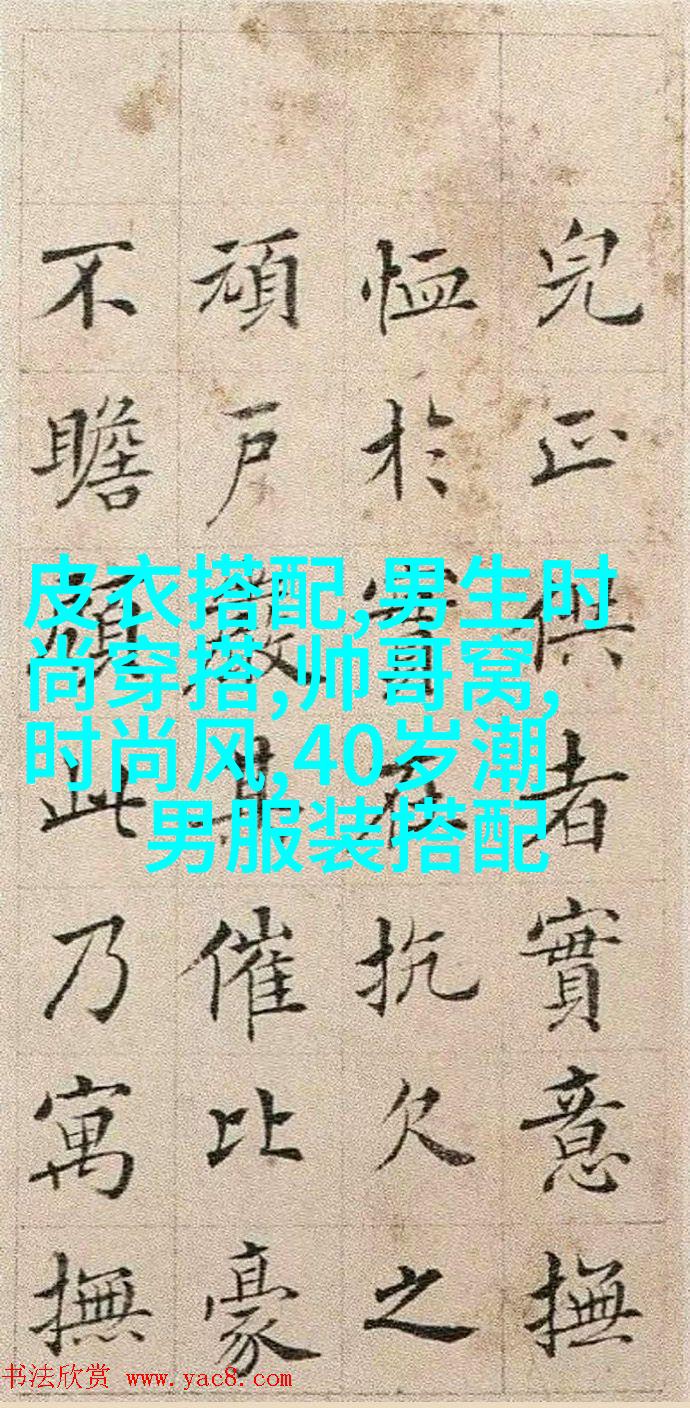 完正供者實意撫
恤於實在抗欠之
頑戶其催比豪
不瞻顧此乃寓撫
皮衣搭配,男生时
尚穿搭,帅哥窝,
时尚风,40岁潮
男服装搭配
书法欣赏 www.yac8.com